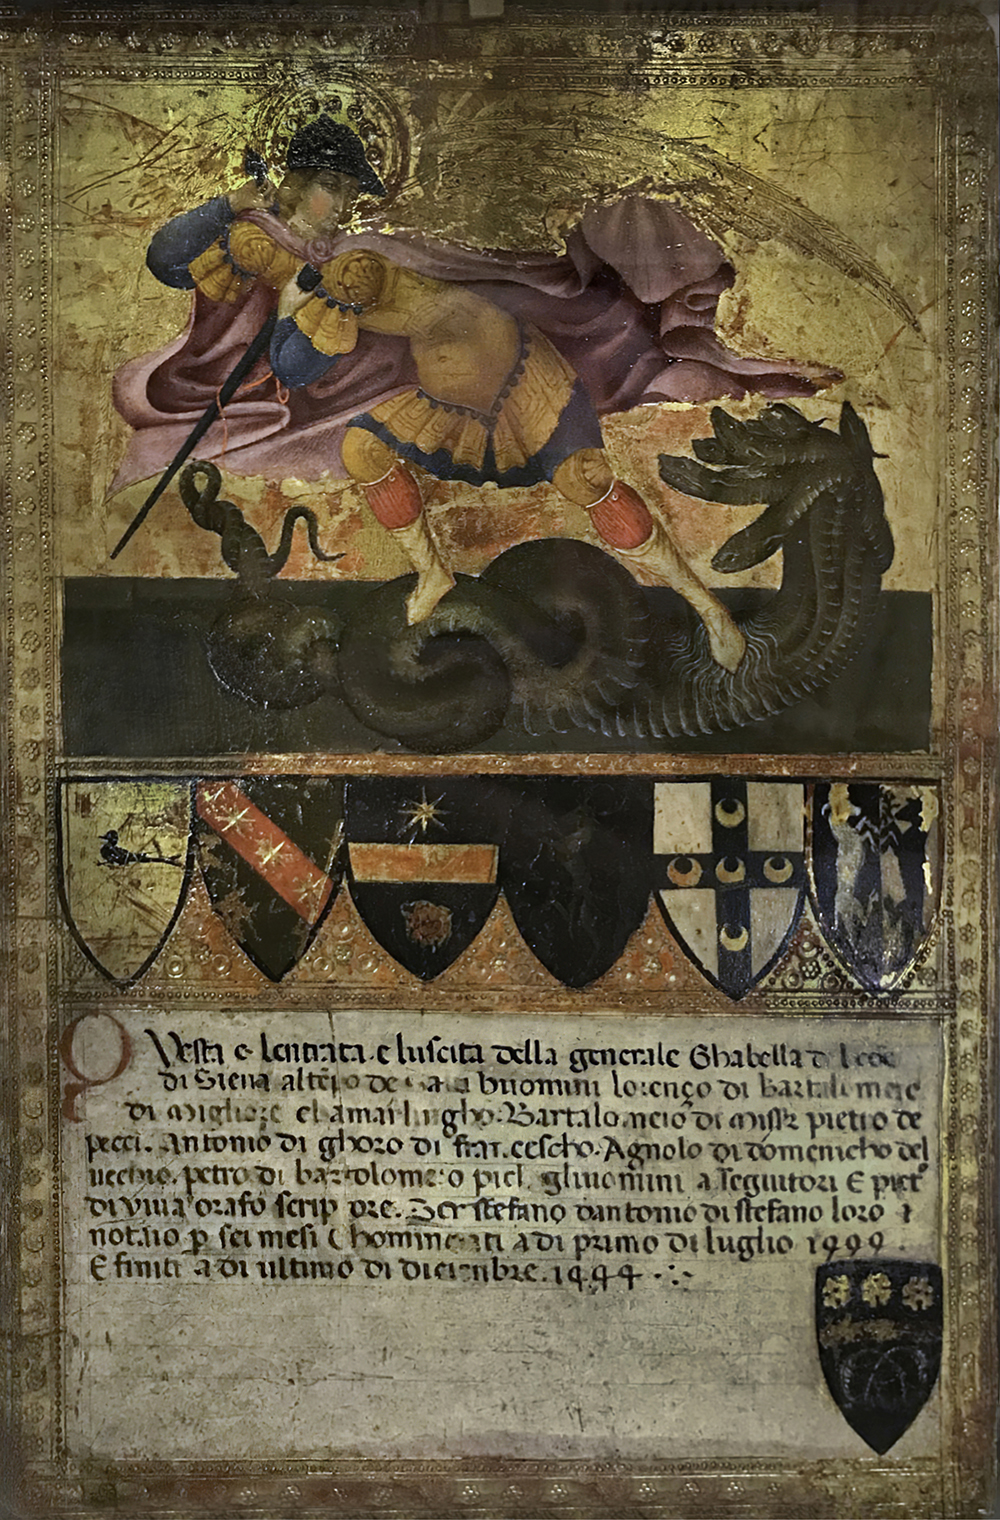 Questa e lentrata e luscita della generale Ghabella
di Siena buomini lorenço di
di migliore Bartalomeio di miss pietro de
pecci. Antonio di ghoro di frac.cescho. Agnolo di domenicho del
uechio. petro di bartolomeo gliuomini a seguitori E piet
di viua orafo scriptore. Ser stefano dantonio di stefano loro
notaio p sei mesi chominciati adi primo di luglio 1444.
E finiti adi ultimo di dicienbre. 1444